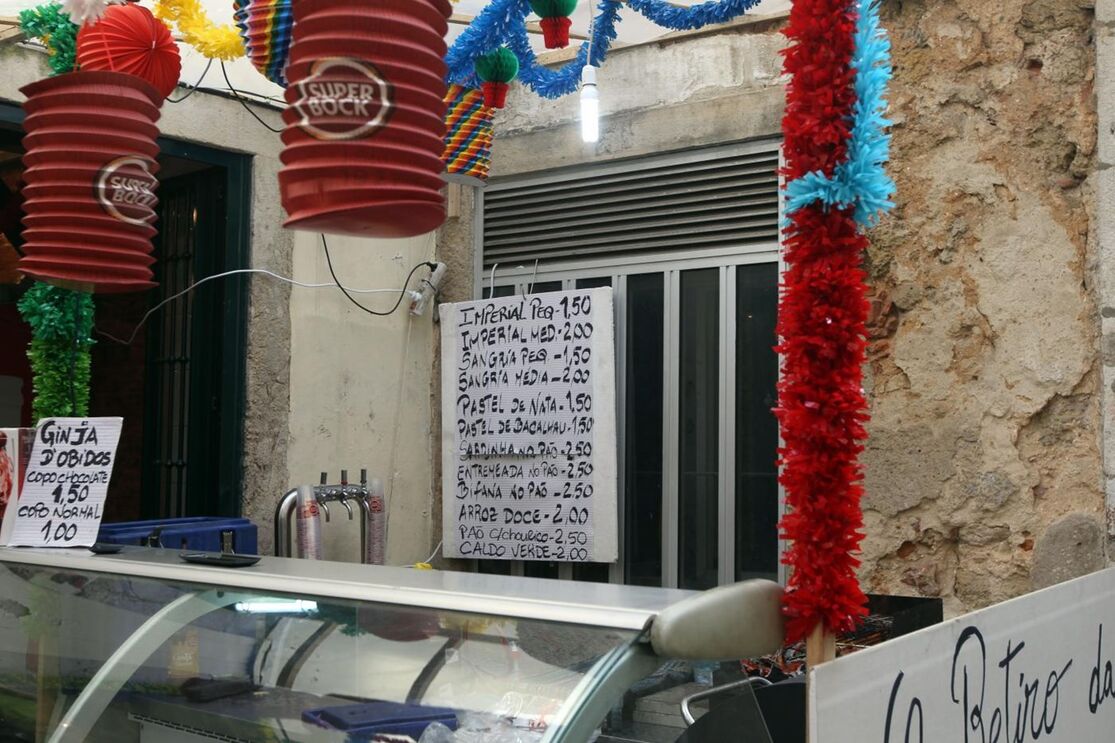 SUPER
BOCK
SUPER
BOCK
IMPERIAL PEQ-1,50
IMPERIAL MED-2,00
SANGRIA PEQ-1,50
SANGRIA MÉDIA-2,00
PASTEL DE NATA-1,50
PASTEL DE BACALHAU-1,50
SARDINHA NO PÃO-2,50
ENTREMEADA NO PÃO-2,50
BIFANA NO PÃO-2,50
ARROZ DOCE-2,00
PÃO C/CHOURIÇO-2,50
CALDO VERDE-2,00
GINJA
D'OBIDOS
COPO CHOCOLATE
1,50
COPO NORMAL
1,00
O Retiro da